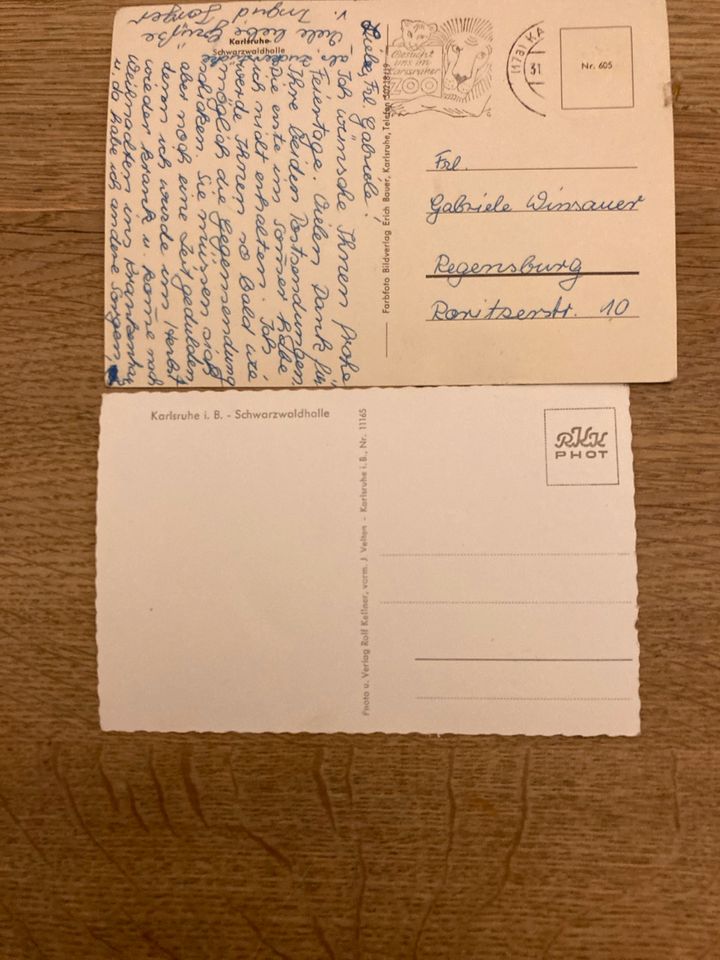 Karlsruhe
Schwarzwaldhalle
Liebe Frl. Gabriele!
Ich wünsche Ihnen frohe
Feiertage. Vielen Dank für
Ihre beiden Postsendungen,
die erste im Sommer habe
ich nicht erhalten. Ich
werde Ihnen so bald wie
möglich die Gegensendung
schicken. Sie müssen sich
aber noch eine Zeit gedulden,
denn ich wurde im Herbst
wieder krank u. kam noch
Weihnachten ins Krankenhaus
u. da habe ich andere Sorgen,
Viele liebe Grüße
v. Ingrid
Farbfoto Bildverlag Erich Bauer, Karlsruhe, Telefon
Besucht
uns im
Karlsruher
ZOO
KA
31
Nr. 605
Frl.
Gabriele Winsauer
Regensburg
Roritzerstr. 10
Karlsruhe i. B. - Schwarzwaldhalle
Photo u. Verlag Rolf Kellner, vorm. J Velten - Karlsruhe i. B., Nr. 11165
RKK
PHOT